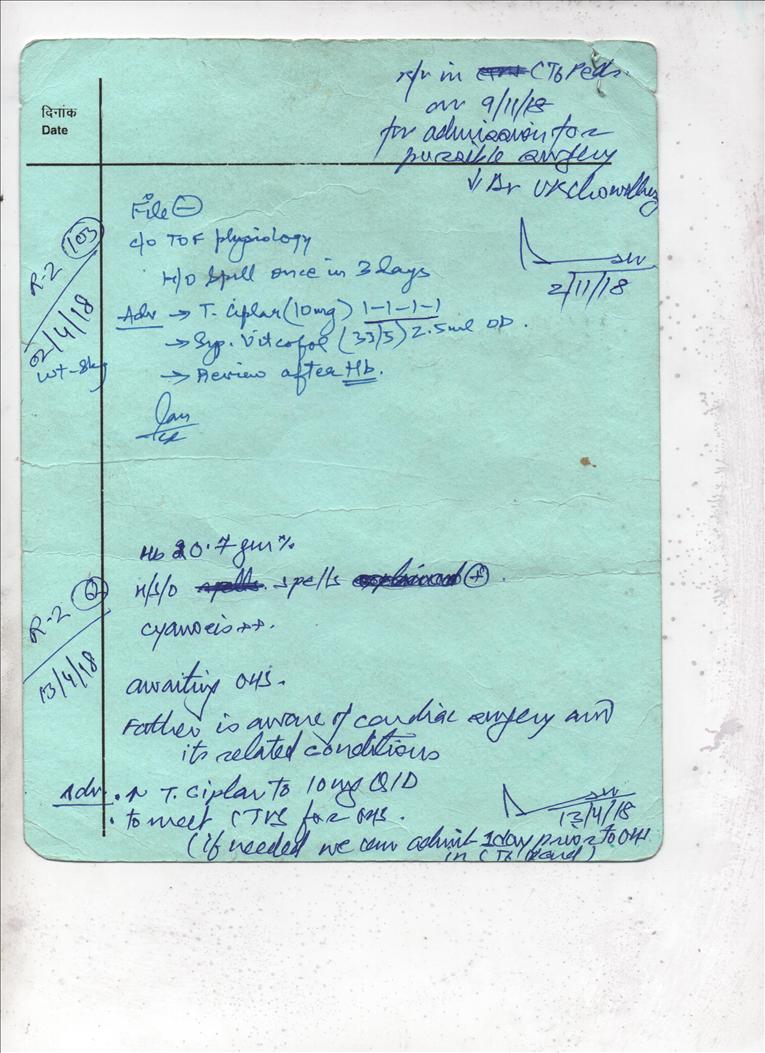 r/v in CT6 Peds.
on 9/11/18
for admission for
possible surgery
↓ Dr UK Chowdhury
2/11/18
दिनांक
Date
R-2 (103)
02/4/18
wt-8kg
File ⊖
c/o TOF physiology
H/O Spell once in 3 days
Adv → T. Ciplar (10mg) 1-1-1-1
→ Syp. Vitcofol (33/5) 2.5ml OD.
→ Review after Hb.
R-2
13/4/18
Hb 20.7 gm%
H/S/O spells ⊕.
cyanosis ++.
awaiting OHS.
Father is aware of cardiac surgery and
its related conditions
Adv. ↑ T. Ciplar to 10mg QID
• to meet CTVS for OHS.
(if needed we can admit 1day prior to OHS
in CT6 ward)
13/4/18